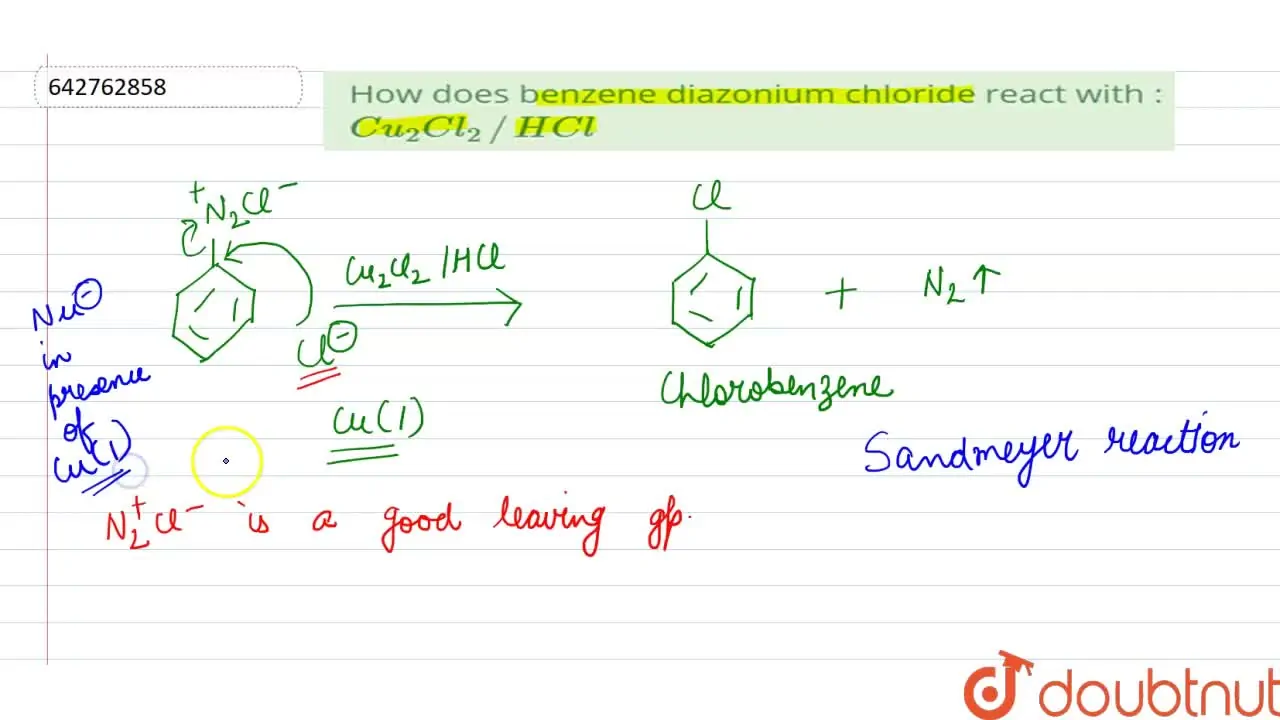 642762858
How does benzene diazonium chloride react with :
Cu₂Cl₂ / HCl
⁺N₂Cl⁻
Cu₂Cl₂ /HCl
Cl⊖
Cu(I)
Cl
+ N₂↑
Chlorobenzene
Sandmeyer reaction
Nu⊖
in
presence
of
Cu(I)
N₂⁺Cl⁻ is a good leaving gp.
doubtnut